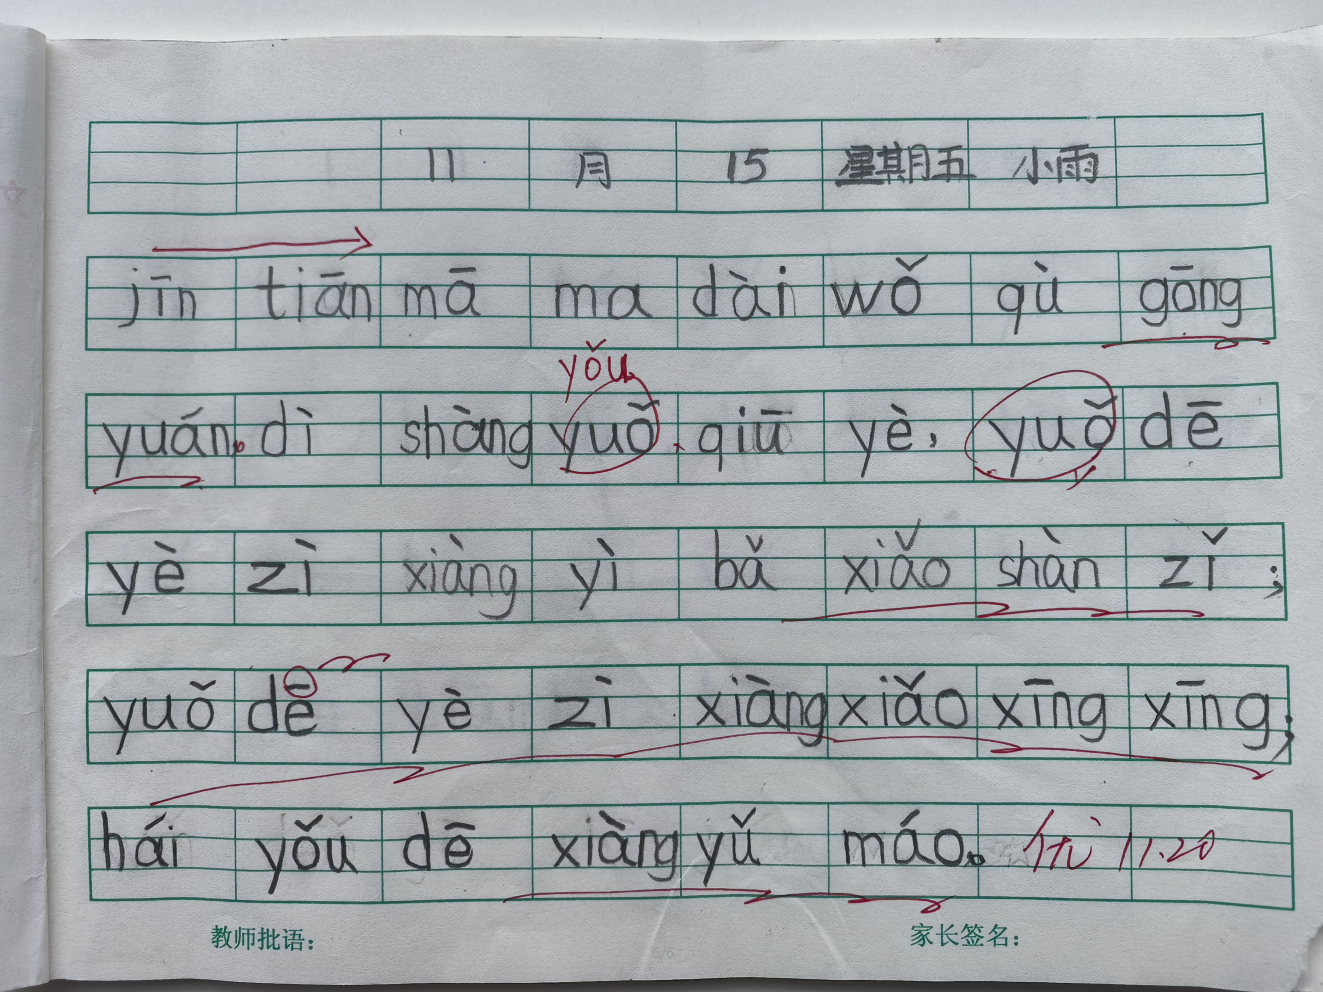 11 月 15 星期五 小雨
jīn tiān mā ma dài wǒ qù gōng
yǒu
yuán。dì shàng yuǒ、qiū yè，yuǒ dē
yè zì xiàng yì bǎ xiǎo shàn zǐ；
yuǒ dē yè zì xiàng xiǎo xīng xīng；
hái yǒu dē xiàng yǔ máo。 优 11.20
教师批语： 家长签名：
6/6